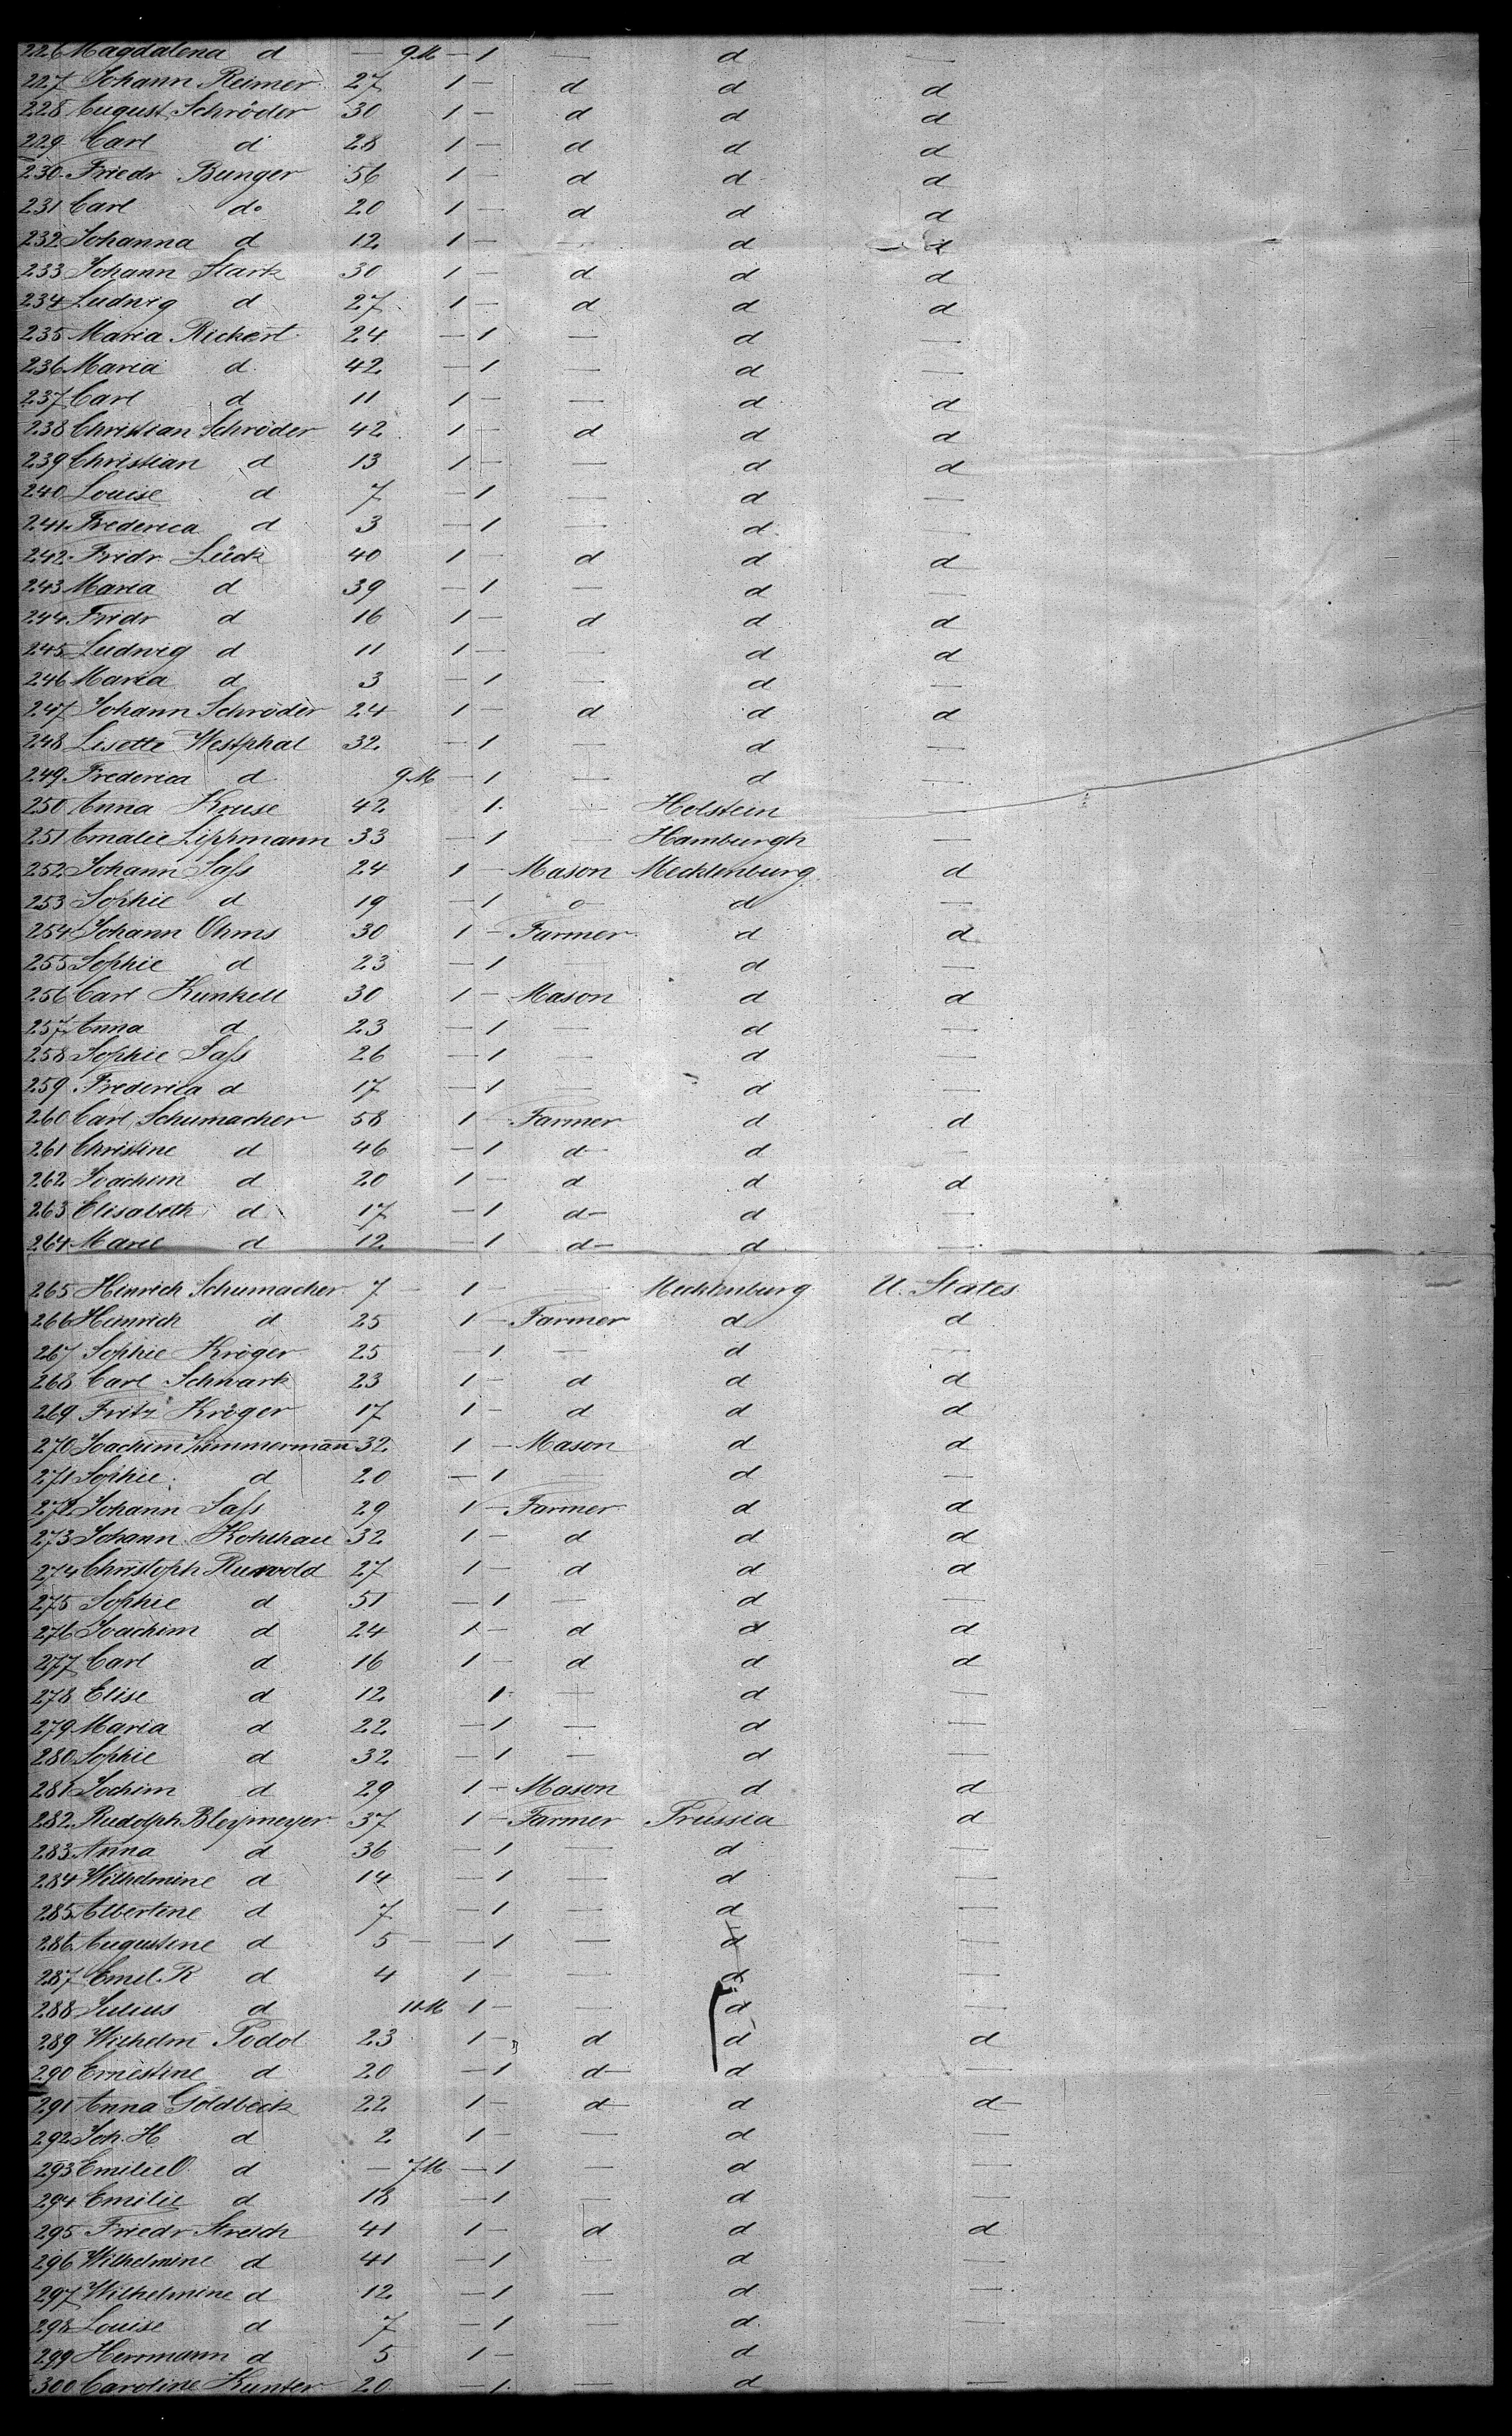 226 Magdalena d — 9M — 1 — d —
227 Johann Reimer 27 1 — d d d
228 August Schröder 30 1 — d d d
229 Carl d 28 1 — d d d
230 Friedr Bunger 56 1 — d d d
231 Carl do 20 1 — d d d
232 Johanna d 12 1 — — d d
233 Johann Stark 30 1 — d d d
234 Ludwig d 27 1 — d d d
235 Maria Rickert 24 — 1 — d —
236 Maria d 42 — 1 — d —
237 Carl d 11 1 — — d d
238 Christian Schröder 42 1 — d d d
239 Christian d 13 1 — — d d
240 Louise d 7 — 1 — d —
241 Frederica d 3 — 1 — d —
242 Fridr Lück 40 1 — d d d
243 Maria d 39 — 1 — d —
244 Fridr d 16 1 — d d d
245 Ludwig d 11 1 — — d d
246 Maria d 3 — 1 — d —
247 Johann Schröder 24 1 — d d d
248 Lisette Westphal 32 — 1 — d —
249 Frederica d 9M — 1 — d —
250 Anna Kruse 42 1 — Holstein —
251 Amalie Lippmann 33 — 1 — Hamburgh —
252 Johann Saß 24 1 — Mason Mecklenburg d
253 Sophie d 19 — 1 — d —
254 Johann Ohms 30 1 — Farmer d d
255 Sophie d 23 — 1 — d —
256 Carl Kunkell 30 1 — Mason d d
257 Anna d 23 — 1 — d —
258 Sophie Saß 26 — 1 — d —
259 Frederica d 17 — 1 — d —
260 Carl Schumacher 58 1 Farmer d d
261 Christine d 46 — 1 d d —
262 Joachim d 20 1 — d d d
263 Elisabeth d 17 — 1 d d —
264 Marie d 12 — 1 d d —
265 Hinrich Schumacher 7 — 1 — Mecklenburg U. States
266 Heinrich d 25 1 — Farmer d d
267 Sophie Kröger 25 — 1 — d —
268 Carl Schwark 23 1 — d d d
269 Fritz Kröger 17 1 — d d d
270 Joachim Zimmermann 32 1 — Mason d d
271 Sophie d 20 — 1 — d —
272 Johann Saß 29 1 — Farmer d d
273 Johann Kohlhau 32 1 — d d d
274 Christoph 27 1 — d d d
275 Sophie d 51 — 1 — d —
276 Joachim d 24 1 — d d d
277 Carl d 16 1 — d d d
278 Elise d 12 1 — d —
279 Maria d 22 — 1 — d —
280 Sophie d 32 — 1 — d —
281 Jochim d 29 1 — Mason d d
282 Rudolph Bleymeyer 37 1 — Farmer Prussia d
283 Anna d 36 — 1 — d —
284 Wilhelmine d 14 — 1 — d —
285 Albertine d 7 — 1 — d —
286 Augustine d 5 — — 1 — d —
287 Emil R d 4 1 — d —
288 Julius d 11M 1 — — d —
289 Wilhelm Podol 23 1 — d d d
290 Ernestine d 20 — 1 d d —
291 Anna Goldbeck 22 1 — d d d
292 Joh. H d 2 1 — — d —
293 Emilie O d — 7M — 1 — d —
294 Emilie d 18 — 1 — d —
295 Friedr Streich 41 1 — d d d
296 Wilhelmine d 41 — 1 — d —
297 Wilhelmine d 12 — 1 — d —
298 Louise d 7 — 1 — d —
299 Herrmann d 5 1 — d
300 Caroline Kunter 20 — 1 — d —